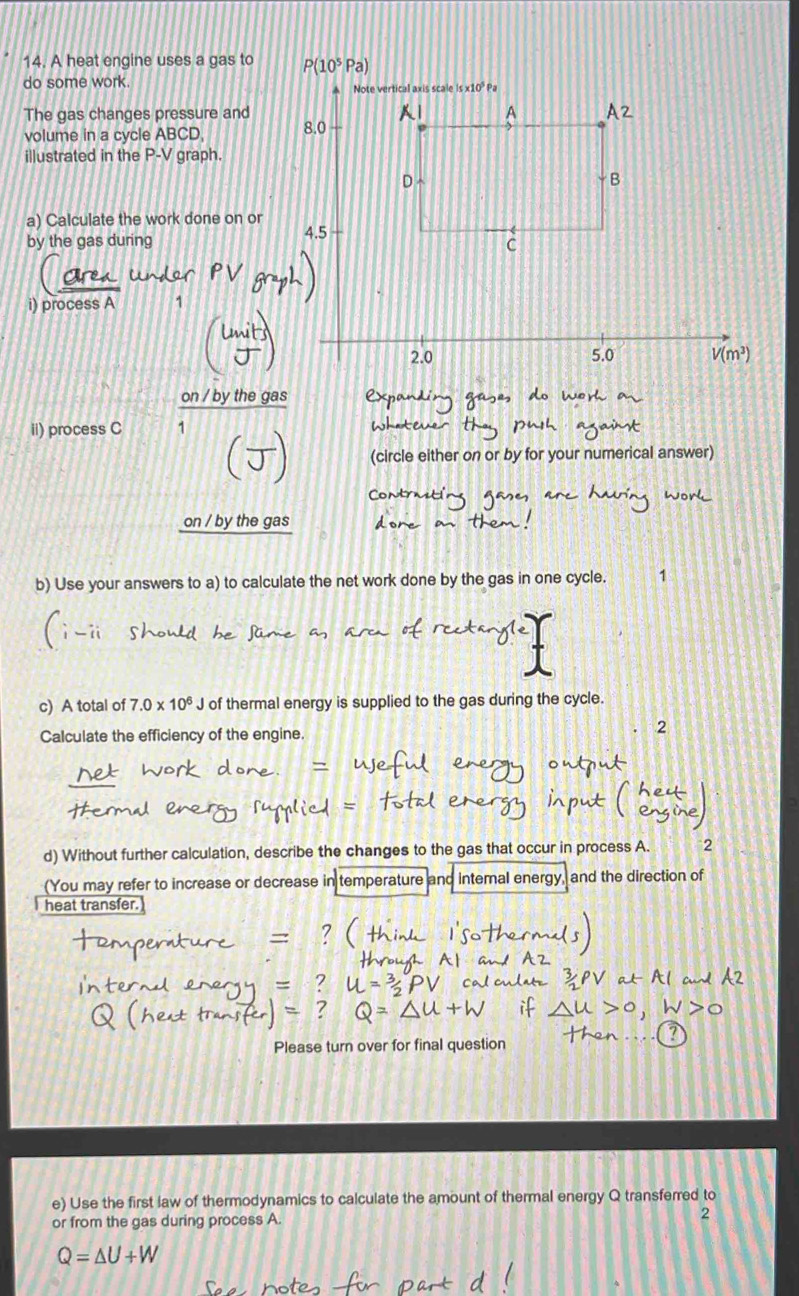 14. A heat engine uses a gas to
do some work.
The gas changes pressure and
volume in a cycle ABCD,
illustrated in the P-V graph.
P(10⁵ Pa)
Note vertical axis scale is x10⁵ Pa
8.0
A1
A
A2
D
B
4.5
C
2.0
5.0
V(m³)
a) Calculate the work done on or
by the gas during
(area under PV graph)
i) process A 1
(units
J)
on / by the gas
expanding gases do work on
whatever they push against
ii) process C 1
(J)
(circle either on or by for your numerical answer)
contracting gases are having work
done on them!
on / by the gas
b) Use your answers to a) to calculate the net work done by the gas in one cycle. 1
(i-ii should be same as area of rectangle
c) A total of 7.0 x 10⁶ J of thermal energy is supplied to the gas during the cycle.
Calculate the efficiency of the engine. 2
net work done. = useful energy output
thermal energy supplied = total energy input (heat engine)
d) Without further calculation, describe the changes to the gas that occur in process A. 2
(You may refer to increase or decrease in temperature and internal energy, and the direction of
heat transfer.)
temperature = ? (think isothermals)
through A1 and A2
internal energy = ? U = 3/2 PV calculate 3/2 PV at A1 and A2
Q (heat transfer) = ? Q = ΔU + W if ΔU > 0, W > 0
then .... ?
Please turn over for final question
e) Use the first law of thermodynamics to calculate the amount of thermal energy Q transferred to
or from the gas during process A. 2
Q = ΔU + W
See notes for part d!